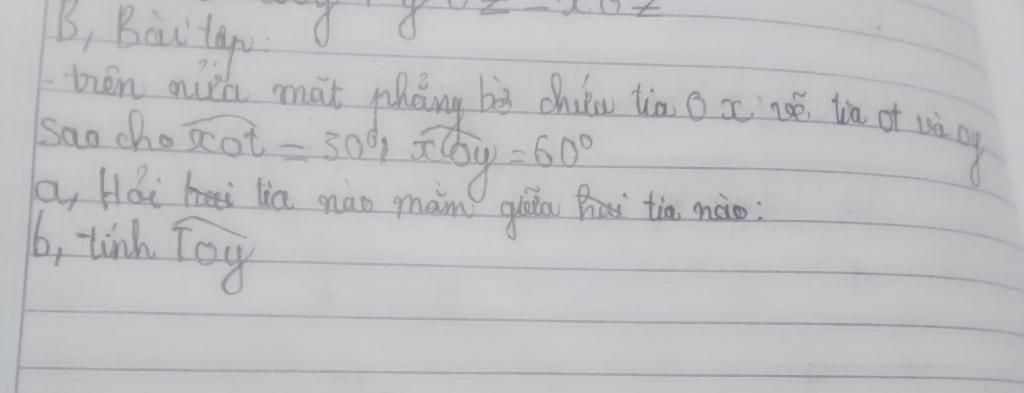 B, Bài tập:
- trên nửa mặt phẳng bờ chứa tia Ox vẽ tia ot và oy
sao cho xot = 30°, xoy = 60°
a, Hỏi tia nào nằm giữa hai tia nào:
b, tính Toy